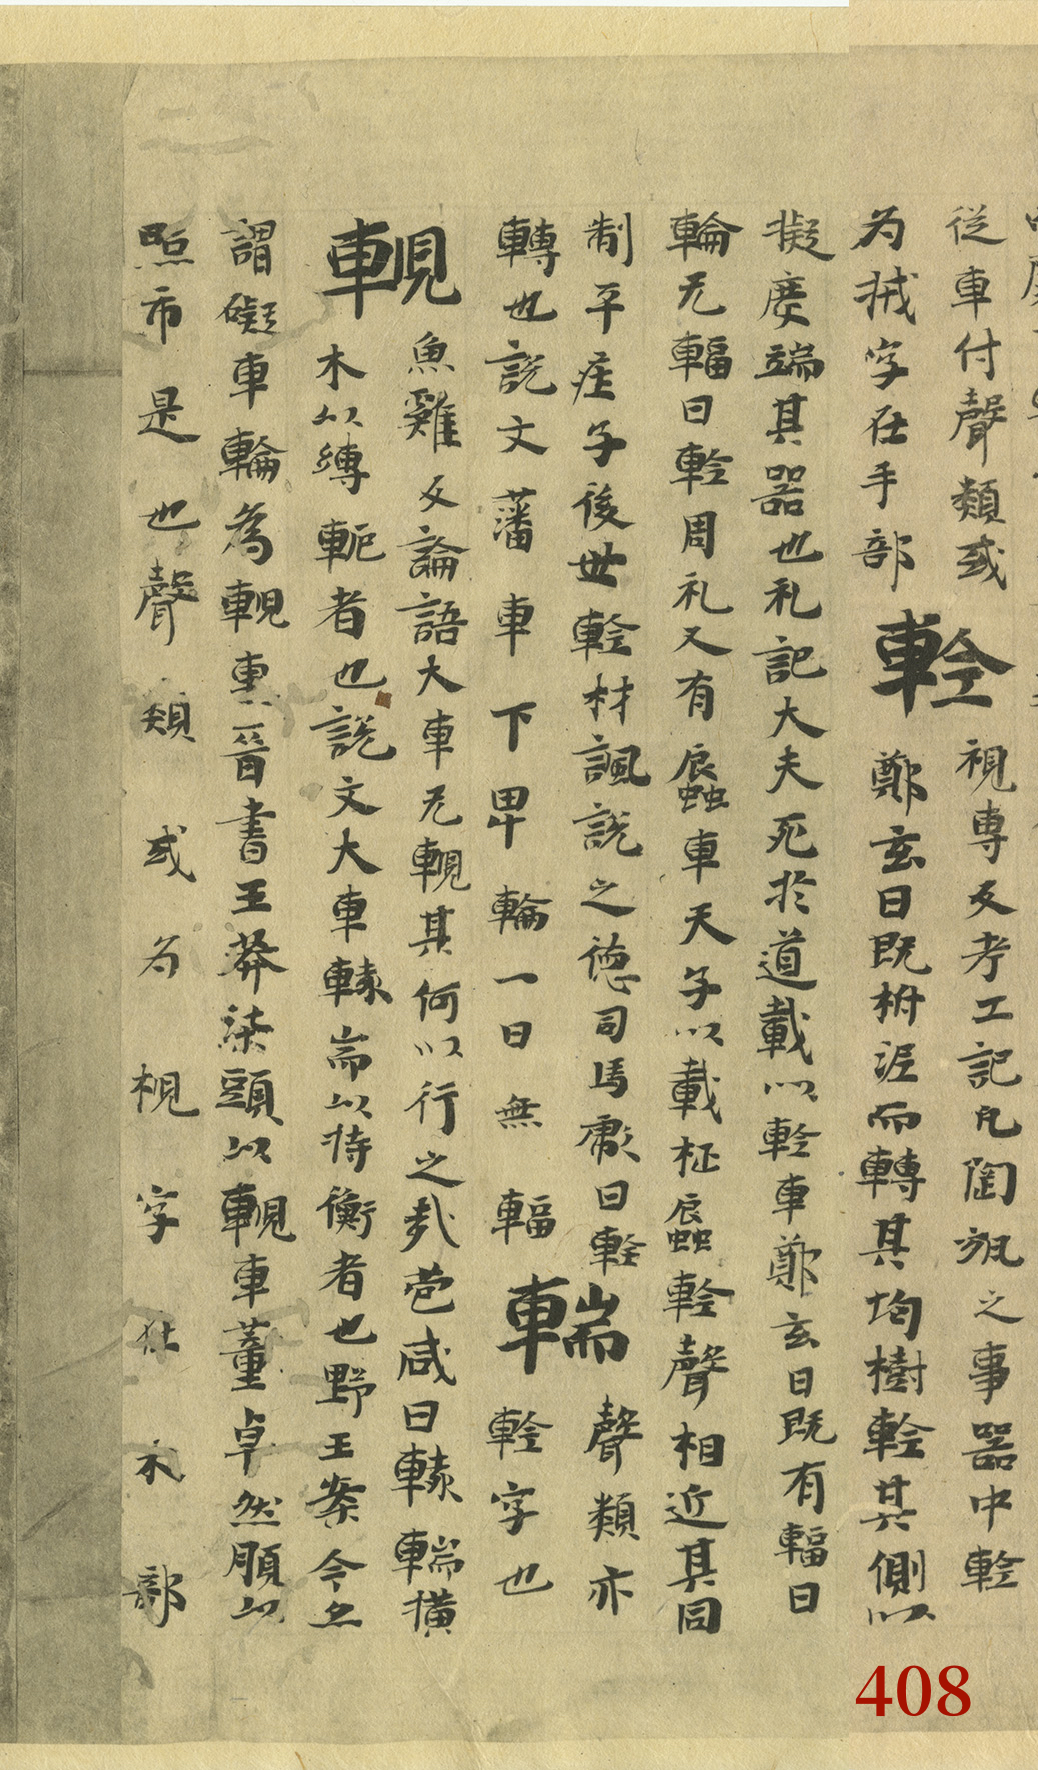 從車付聲類或
為㧒字在手部輇視專反考工記凡陶瓬之事器中輇
鄭玄曰既柎泥而轉其均樹輇其側以
擬度端其器也礼記大夫死於道載以輇車鄭玄曰既有輻曰
輪无輻曰輇周礼又有蜃車天子以載柩蜃輇聲相近其同
制乎庄子後世輇材諷說之德司馬彪曰輇
轉也說文藩車下卑輪一曰無輻䡱聲類亦
輇字也
輗魚雞反論語大車无輗其何以行之哉苞咸曰轅䡱橫
木以縛軶者也說文大車轅耑以持衡者也野王案今亦
謂礙車輪為輗車晉書王莽柒頭以輗車董卓然順以
照市是也聲類或為棿字在木部
408